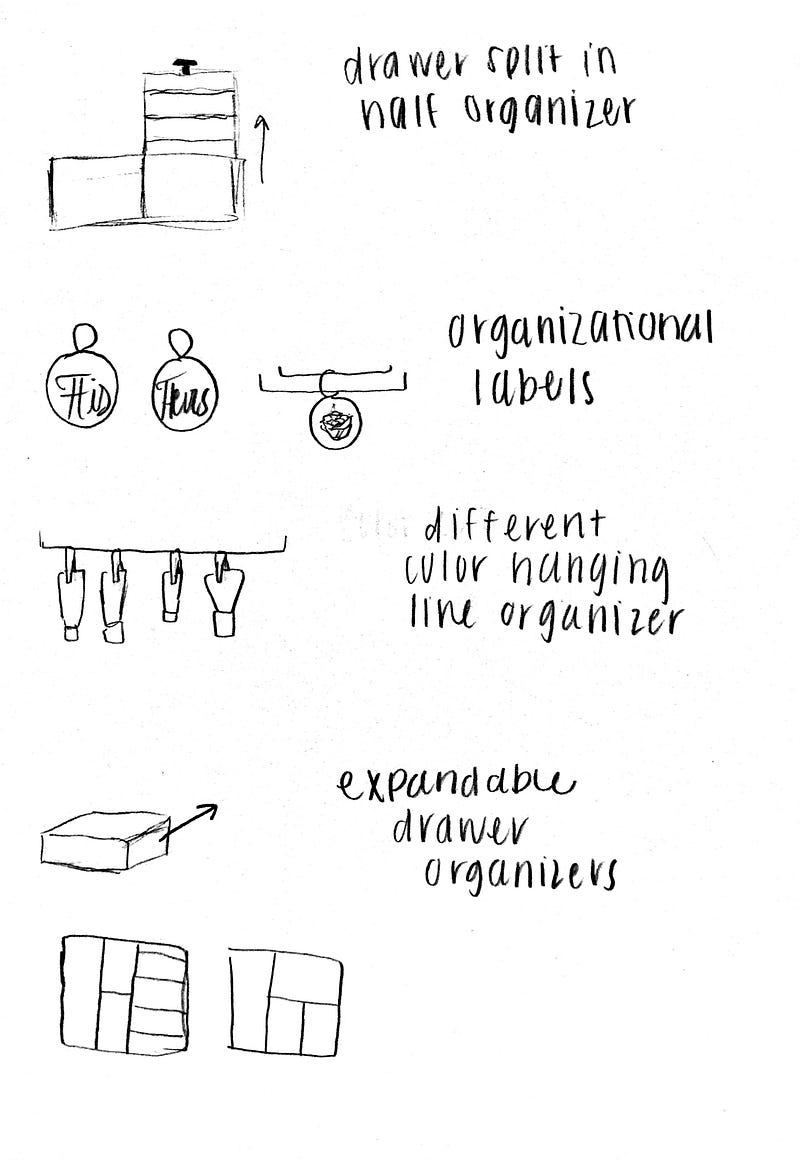 drawer split in
half organizer
His
Hers
organizational
labels
different
color hanging
line organizer
expandable
drawer
organizers